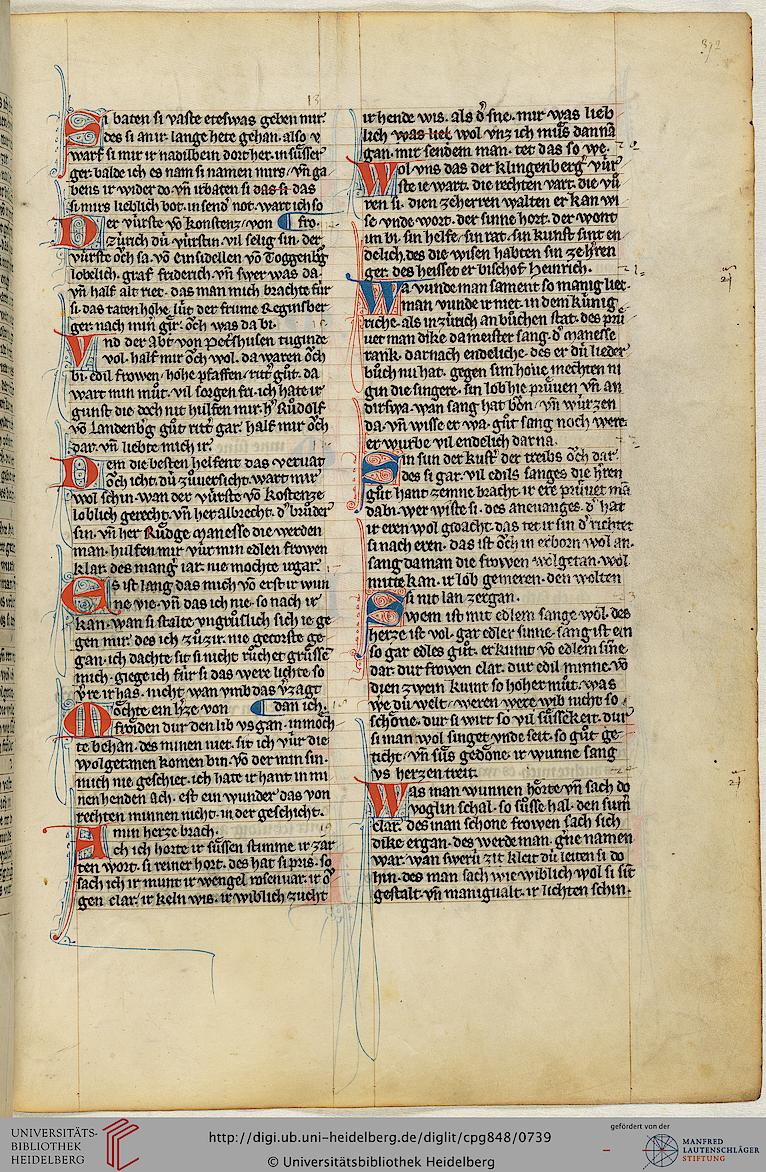 372
Si baten si vaste eteswas geben mir
des si an ir lange hete gehan. also v̾
warf si mir ir nadilbein dort her. in süsser
ger. balde ich es nam si namen mirs / vn̄ ga
bens ir wider do vn̄ irbaten si das si das
si mirs lieblich bot. in send̾ not. wart ich so
Der vürste vō Konstenz / von fro.
Zürich dü vürstin. vil selig sin. der
vürste ȯch sa. vō einsidellen vō Toggenbg̾
lobelich. graf friderich. vn̄ swer was da.
vn̄ half alt riet. das man mich brachte für
si. das taten hohe lüt der frume Reginsber
ger. nach min̾ gir. ȯch was da bi.
Vnd der Abt von Petershusen tuginde
vol. half mir ȯch wol. da waren ȯch
bi. edil frowen / hohe pfaffen / ritt̾ gůt. da
wart min můt. vil sorgen fri. ich hate ir
gunst die doch nit hulfen mir. h̾ Růdolf
vō Landenb̾g gůt ritt̾ gar. half mir ȯch
dar. vn̄ liebte mich ir.
Dem die besten helfent das vervat
ȯch icht. dü zůversicht. wart mir
wol schin. wan der vürste vō Kostenze.
loblich gerecht. vn̄ her albrecht. d̾ brůder
sin. vn̄ her Rüdge Manesse die werden
man. hulfen mir vür min edlen frowen
klar. des mang̾ iar. nie mochte irgar.
Es ist lang das mich vō erst ir wun
ne vie. vn̄ das ich nie. so nach ir
kan. wan si stalte vngrůslich sich ie ge
gen mir. des ich zů zir. nie getorste ge
gan. ich dachte sit si nicht růchet grüssē
mich. giege ich für si das were lichte so
v̾re ir has. nicht wan vmb das v̾zagt
Mȯchte ein h̾ze von dan ich.
frȯiden dur den lib vs gan. in mȯch
te behan. des minen niet. sit ich vür die
wolgetanen komen bin. vō der min sin.
mich nie geschiet. ich hate ir hant in mi
nen henden ach. est ein wunder das von
rechten minnen nicht. in der geschicht.
min herze brach.
Ach ich horte ir süssen stimme ir zar
ten wort. si reiner hort. des hat si pris. so
sach ich ir munt ir wengel rosenvar. ir ȯ̾
gen clar. ir keln wis. ir wiblich zucht
ir hende wis. als d̾ sne. mir was lieb
lich was lieb wol vnz ich můs dannā
gan. mir sendem man. ter das so we.
Wol vns das der Klingenberg̾ vür
ste ie wart. die rechten vart. die vů
ren si. dien ze herren walten er kan wi
se vnde wort. der sinne hort. der wont
im bi. sin helfe / sin rat. sin kunst sint en
delich. des die wisen habten sin ze h̾ren
ger. des heisset er bischof Heinrich.
Wa vunde man sament so manig liet.
man vunde ir niet. in dem künig
riche. als in zürich an bůchen stat. des prů
uet man dike da meister sang. d̾ Manesse
rank. dar nach endeliche. des er dü lieder
bůch nu hat. gegen sim hove mechten ni
gin die singere. sin lob hie prüuen vn̄ an
dirswa. wan sang hat bȯn / vn̄ würzen
da. vn̄ wisse er wa. gůt sang noch were.
er wurbe vil endelich dar na.
Sin sun der kust̾ der treibs ȯch dar.
des si gar. vil edils sanges die h̾ren
gůt. hant zemne bracht. ir ere prüuet mā
dabi. wer wiste si. des anevanges. d̾ hat
ir eren wol gidacht. das tet ir sin d̾ richtet
si nach eren. das ist ȯch in erborn wol an.
sang da man die frowen wolgetan. wol
mitte kan. ir lob gemeren. den wolten
si nit lan zergan.
Swem ist mit edlem sange wol. des
herze ist vol. gar edler sinne. sang ist ein
so gar edles gůt. er kumt vō edlem sinē.
dar. dur frowen clar. dur edil minne. vō
dien zwein kumt so hoher můt. was
we dü welt / weren were wib nicht so
schȯne. dur si wirt so vil süssekeit. dur
si man wol singet vnde seit. so gůt ge
ticht / vn̄ süs gedȯne. ir wunne sang
vs herzen treit.
Was man wunnen hȯrte vn̄ sach do
voglin schal. so süsse hal. den sum̄
clar. des man schone frowen sach sich
dike ergan. des werde man. g̾ne namen
war. wan swerü zit kleit dü leiten si do
hin. des man sach wie wiblich wol si sit
gestalt. vn̄ manigualt. ir lichten schin.
UNIVERSITÄTS-
BIBLIOTHEK
HEIDELBERG
http://digi.ub.uni-heidelberg.de/diglit/cpg848/0739
© Universitätsbibliothek Heidelberg
gefördert von der
MANFRED
LAUTENSCHLÄGER
STIFTUNG